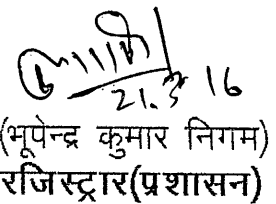 21.3 16
(भूपेन्द्र कुमार निगम)
रजिस्ट्रार(प्रशासन)